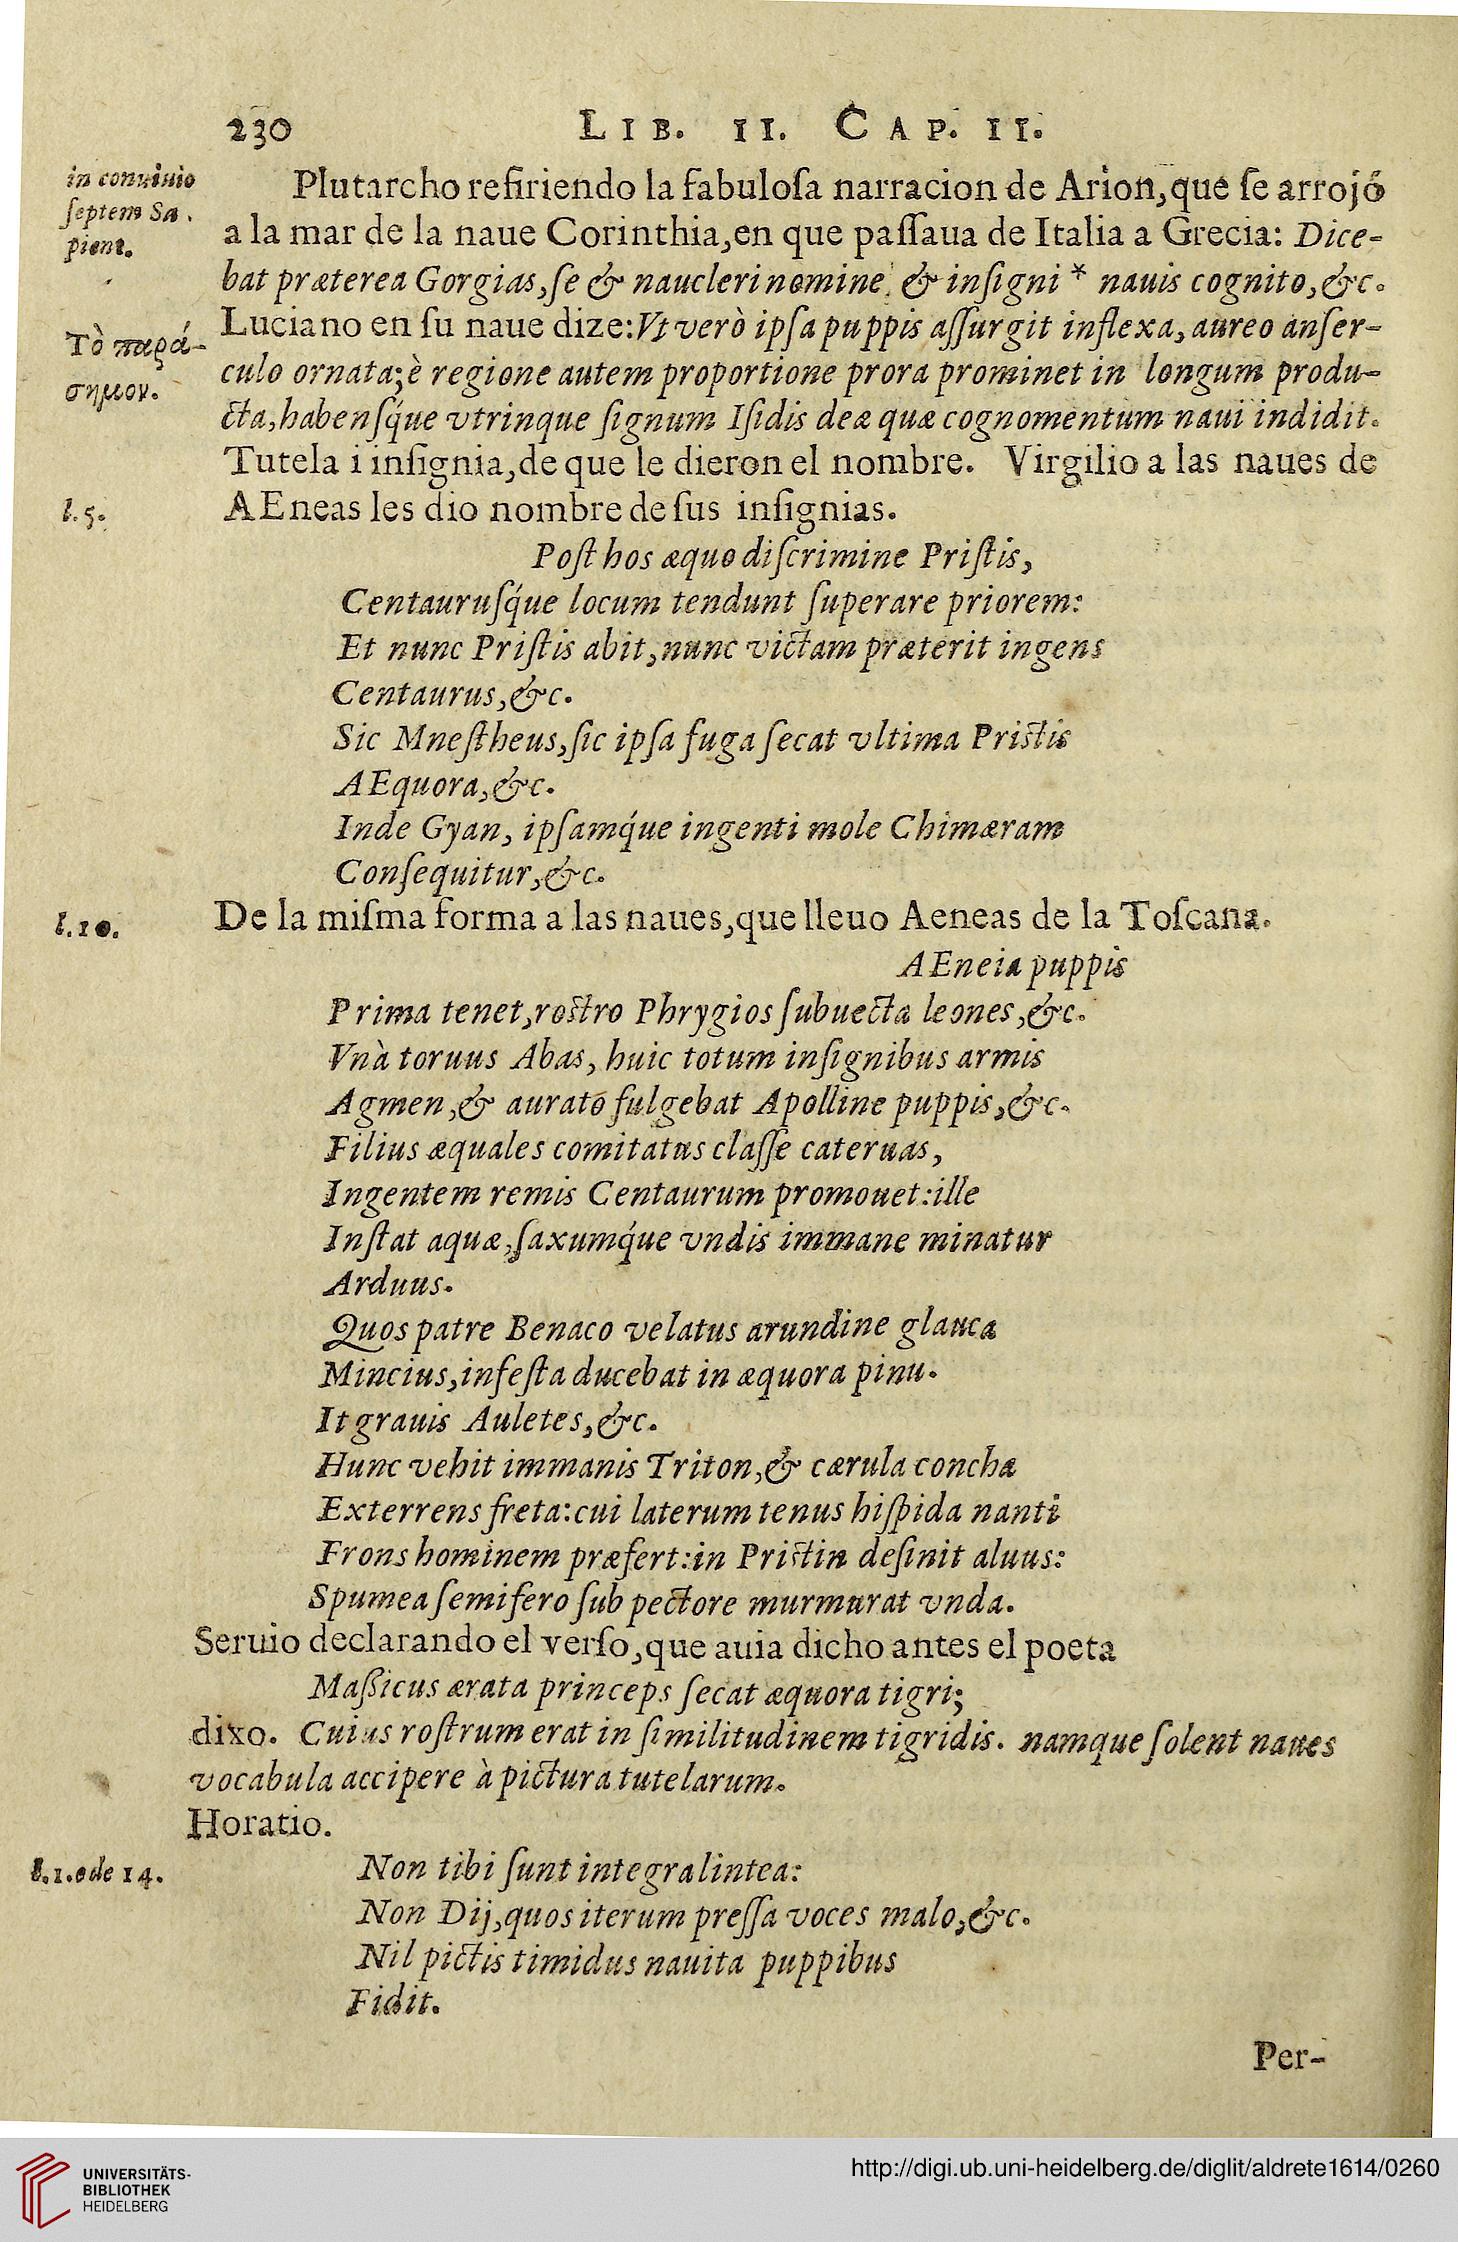 230 LIB. II. CAP. II.
in conuiuio
ſeptem Sa.
pient.
Plutarcho refiriendo la fabuloſa narracion de Arion,que ſe arrojó
a la mar de la naue Corinthia,en que paſſaua de Italia a Grecia: Dice-
bat præterea Gorgias,ſe & naucleri nomine & inſigni * nauis cognito,&c.
Τὸ παρά-
σημον.
Luciano en ſu naue dize:Vt verò ipſa puppis aſſurgit inflexa, aureo anſer-
culo ornata;è regione autem proportione prora prominet in longum produ-
cta,habenſq́ue vtrinque ſignum Iſidis deæ quæ cognomentum naui indidit.
Tutela i inſignia,de que le dieron el nombre. Virgilio a las naues de
l.5. AEneas les dio nombre de ſus inſignias.
Poſt hos æquo diſcrimine Priſtis,
Centauruſq́ue locum tendunt ſuperare priorem:
Et nunc Priſtis abit,nunc victam præterit ingens
Centaurus,&c.
Sic Mneſtheus,ſic ipſa fuga ſecat vltima Priſtis
AEquora,&c.
Inde Gyan, ipſamq́ue ingenti mole Chimæram
Conſequitur,&c.
l.10. De la miſma forma a las naues,que lleuo Aeneas de la Toſcana.
AEneia puppis
Prima tenet,roſtro Phrygios ſubuecta leones,&c.
Vnà toruus Abas, huic totum inſignibus armis
Agmen,& aurato fulgebat Apolline puppis,&c.
Filius æquales comitatus claſſe cateruas,
Ingentem remis Centaurum promouet:ille
Inſtat aquæ,ſaxumq́ue vndis immane minatur
Arduus.
Quos patre Benaco velatus arundine glauca
Mincius,infeſta ducebat in æquora pinu.
It grauis Auletes,&c.
Hunc vehit immanis Triton,& cærula concha
Exterrens freta:cui laterum tenus hiſpida nanti
Frons hominem præfert:in Priſtin deſinit aluus:
Spumea ſemifero ſub pectore murmurat vnda.
Seruio declarando el verſo,que auia dicho antes el poeta
Maſsicus ærata princeps ſecat æquora tigri;
dixo. Cuius roſtrum erat in ſimilitudinem tigridis. namque ſolent naues
vocabula accipere à pictura tutelarum.
Horatio.
l.1.ode 14. Non tibi ſunt integra lintea:
Non Dij,quos iterum preſſa voces malo,&c.
Nil pictis timidus nauita puppibus
Fidit.
Per-
UNIVERSITÄTS-
BIBLIOTHEK
HEIDELBERG
http://digi.ub.uni-heidelberg.de/diglit/aldrete1614/0260